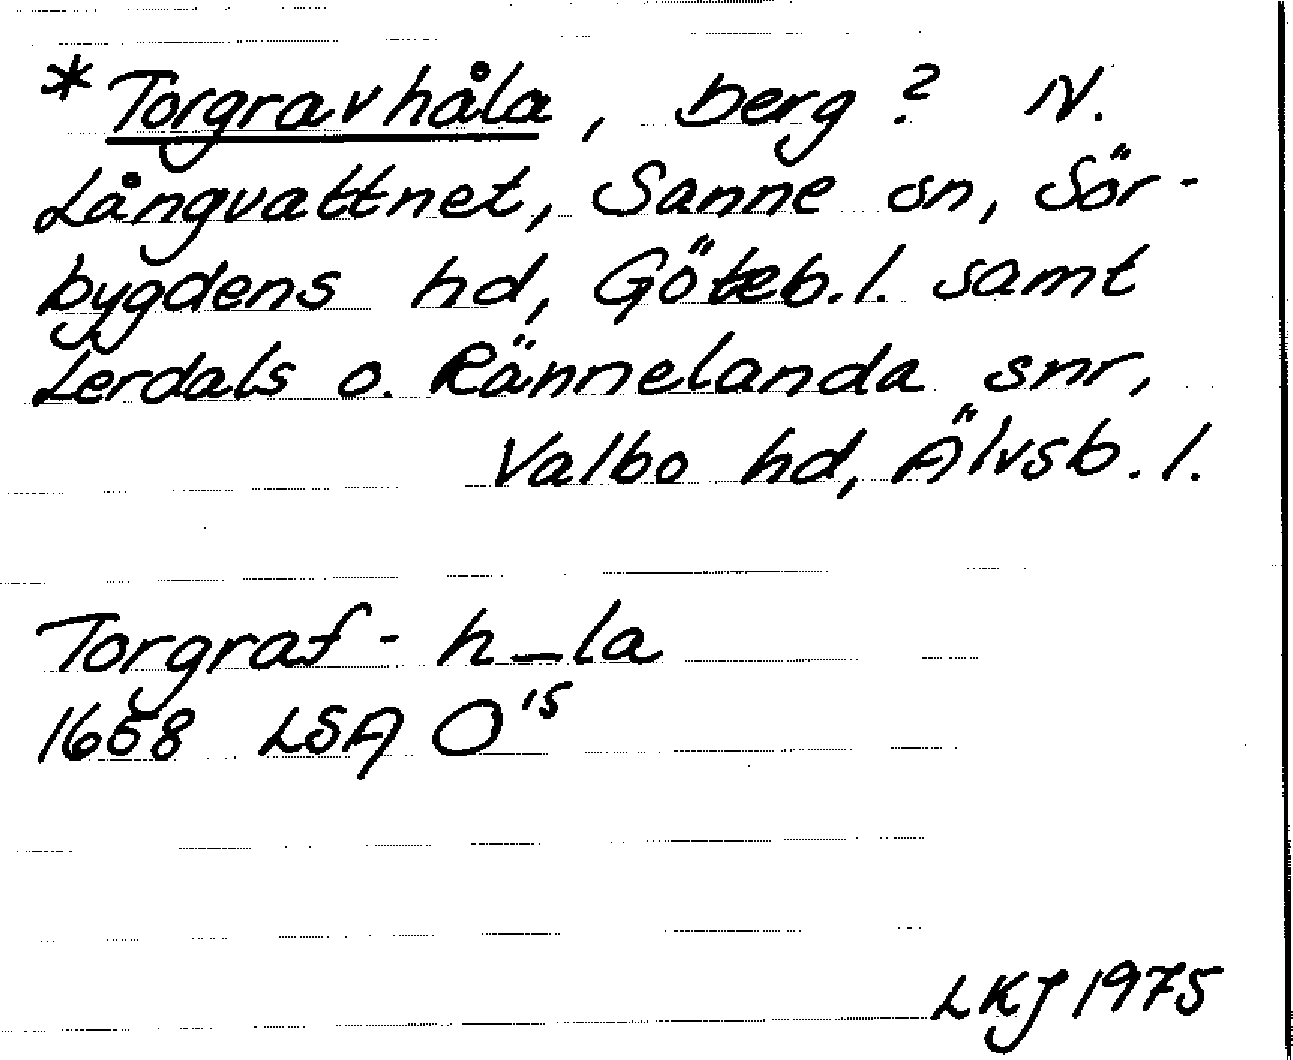 *Torgravhåla, berg? N.
Långvattnet, Sanne sn, Sör-
bygdens hd, Göteb.l. samt
Lerdals o. Rännelanda snr,
Valbo hd, Älvsb.l.
Torgraf- h_la
1658 LSA O'5
LKJ 1975